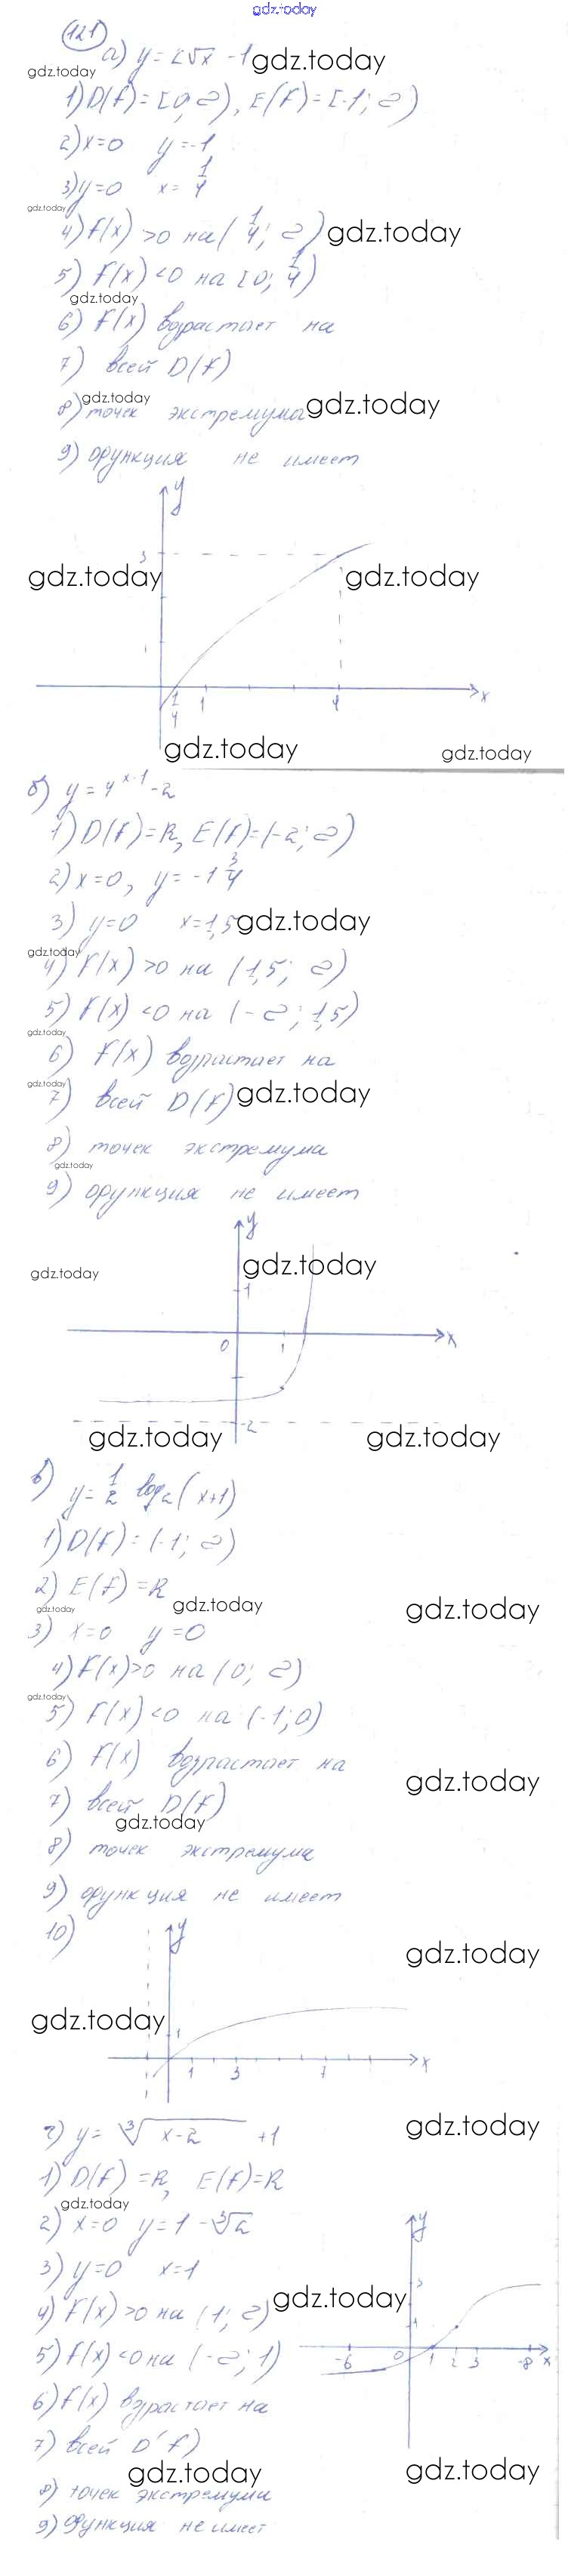 gdz.today
121
а) y = 2√x - 1 gdz.today
gdz.today
1) D(f) = [0; ∞), E(f) = [-1; ∞)
2) x=0 y=-1
3) y=0 x= 1/4
gdz.today
4) f(x) >0 на (1/4; ∞) gdz.today
5) f(x) <0 на [0; 1/4)
gdz.today
6) f(x) возрастает на
7) всей D(f)
gdz.today
8) точек экстремума gdz.today
9) функция не имеет
y
3
gdz.today gdz.today
1
x
1/4 1 4
gdz.today gdz.today
б) y = 4^(x-1) - 2
1) D(f) = R, E(f) = (-2; ∞)
2) x=0, y= -1 3/4
3) y=0 x=1,5 gdz.today
gdz.today
4) f(x) >0 на (1,5; ∞)
5) f(x) <0 на (-∞; 1,5)
gdz.today
6) f(x) возрастает на
gdz.today
7) всей D(f) gdz.today
8) точек экстремума
gdz.today
9) функция не имеет
y
gdz.today gdz.today
1
0 1 x
-2
gdz.today gdz.today
в) y = 1/2 log₂(x+1)
1) D(f) = (-1; ∞)
2) E(f) = R
gdz.today gdz.today gdz.today
3) x=0 y=0
4) f(x)>0 на (0; ∞)
gdz.today
5) f(x) <0 на (-1; 0)
6) f(x) возрастает на
gdz.today
7) всей D(f)
gdz.today
8) точек экстремума
9) функция не имеет
10)
y
gdz.today
gdz.today
1
x
1 3 7
г) y = ∛(x-2) +1 gdz.today
1) D(f) = R, E(f)=R
gdz.today
2) x=0 y=1-∛2
y
3) y=0 x=1
3
gdz.today
4) f(x) >0 на (1; ∞)
1
5) f(x) <0 на (-∞; 1)
-6 0 1 2 3 -8 x
6) f(x) возрастает на
7) всей D(f)
gdz.today gdz.today
8) точек экстремума
9) функция не имеет